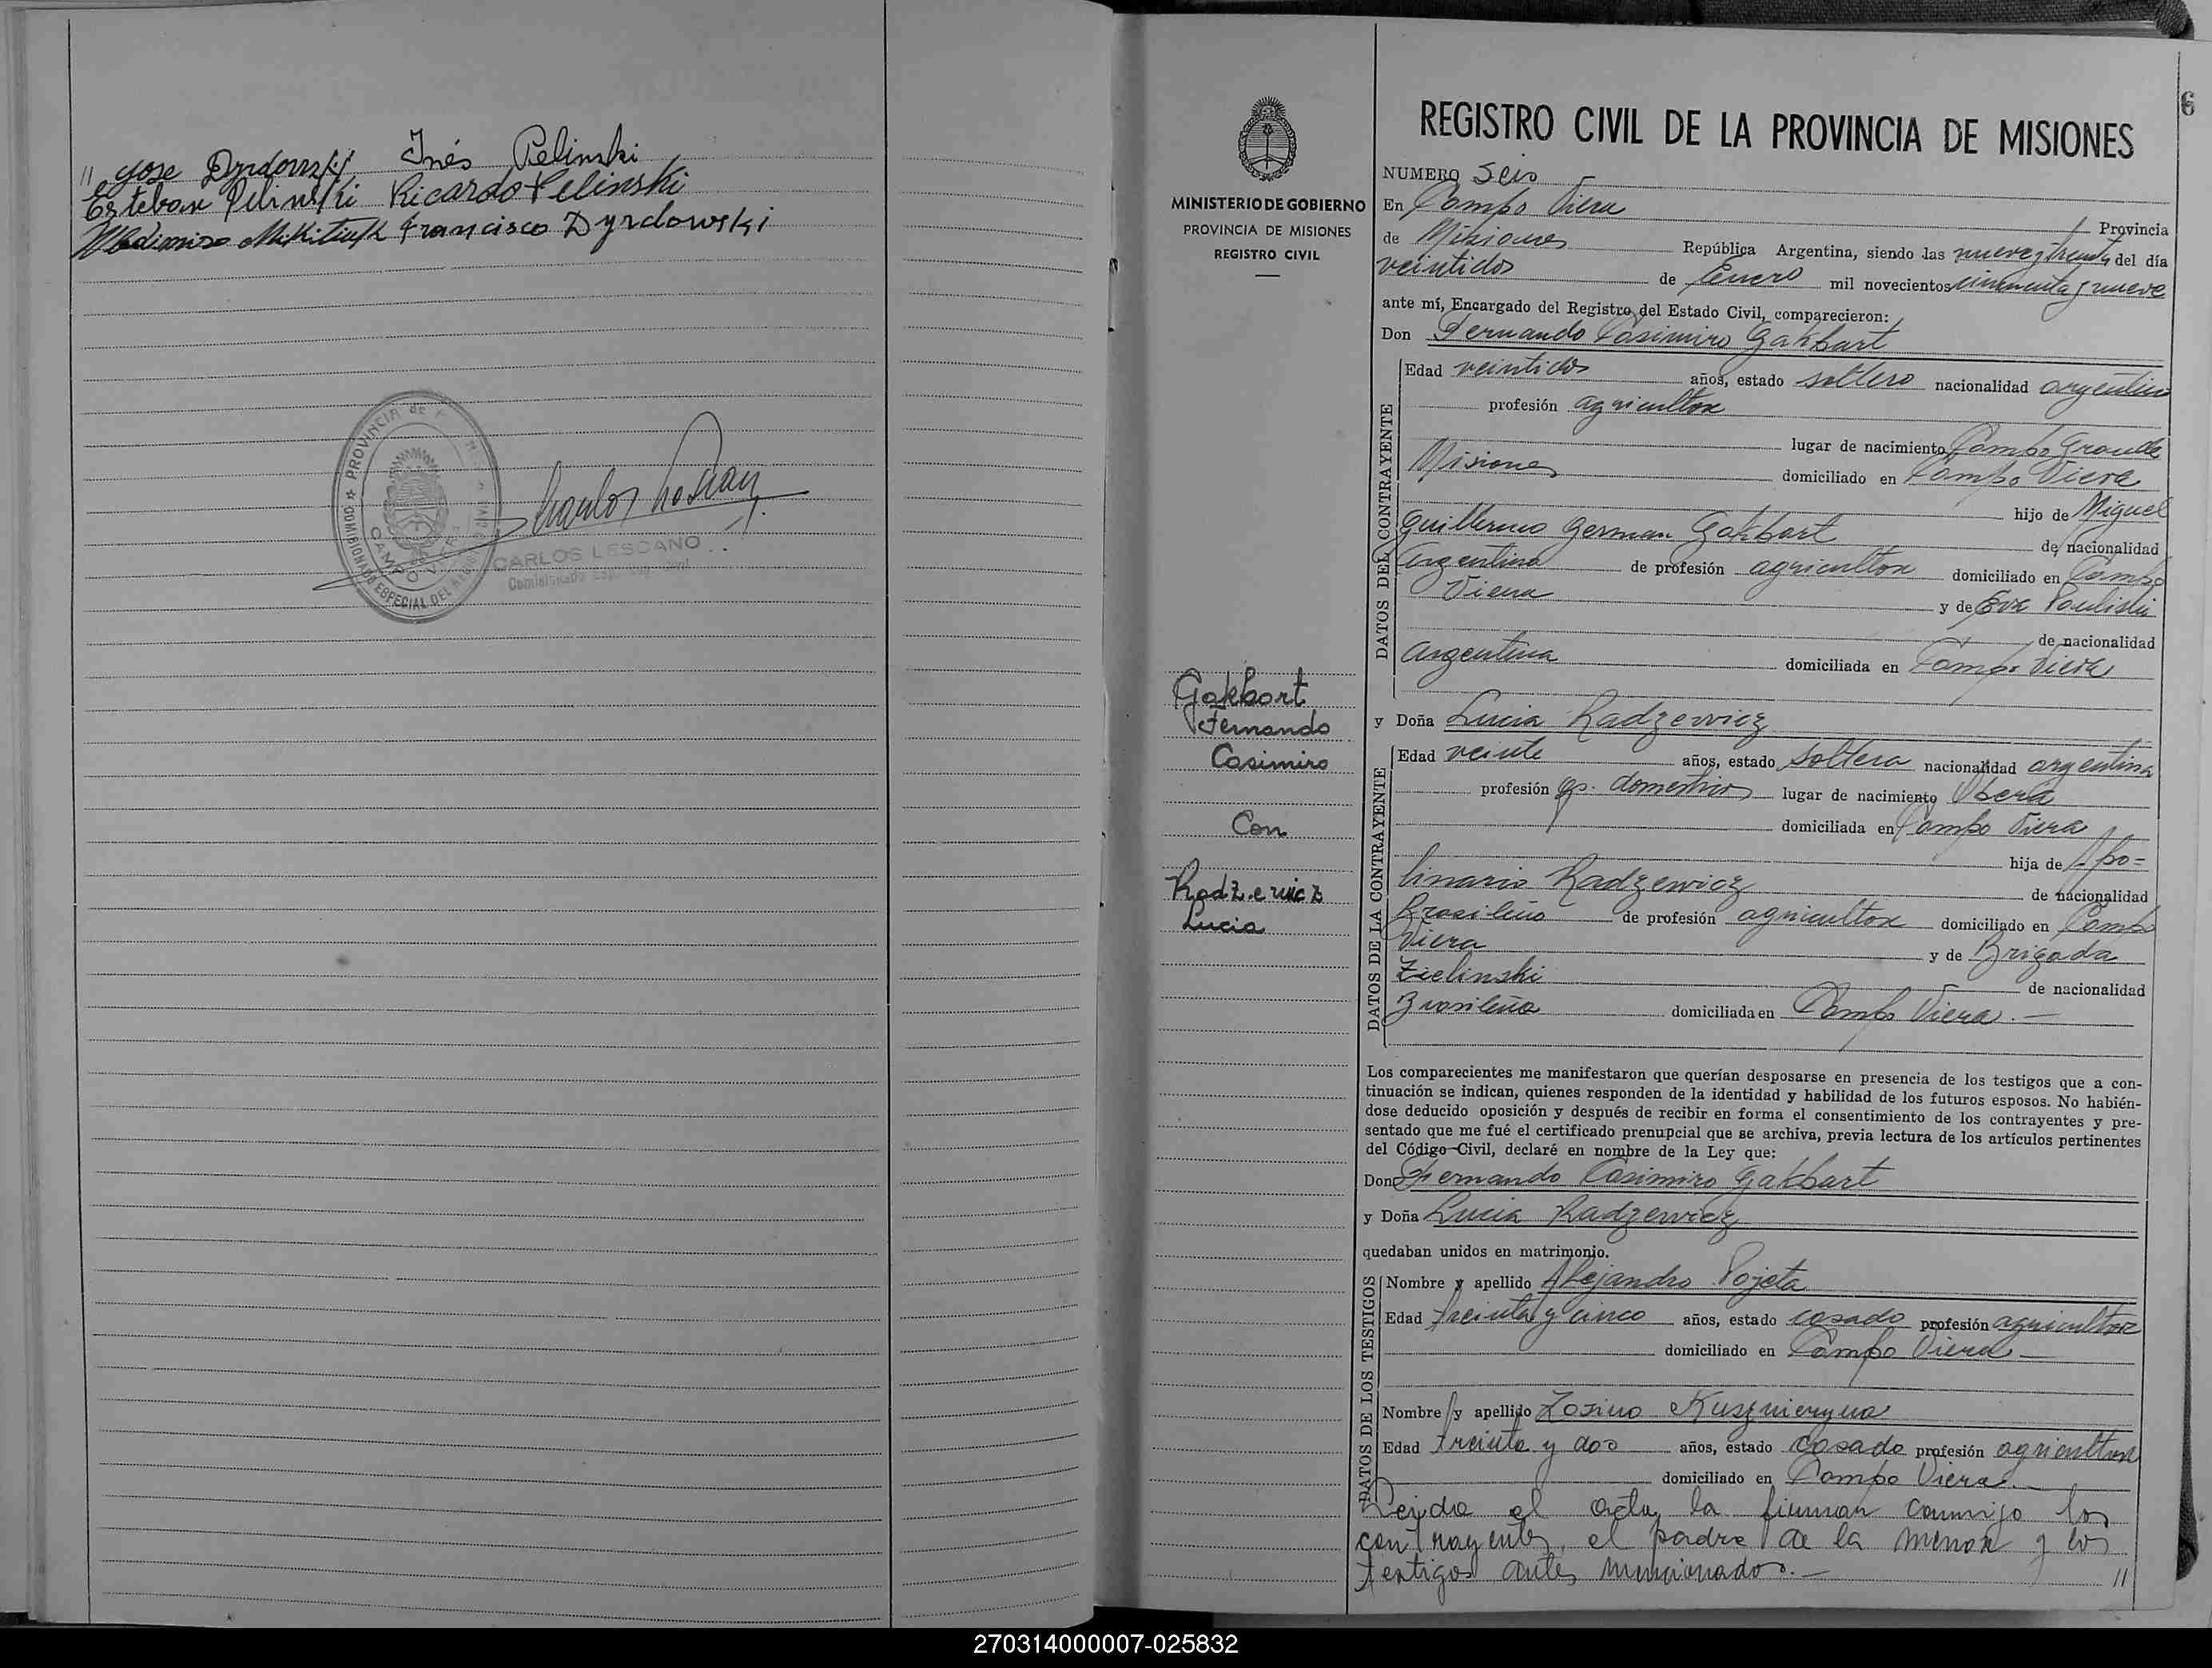 " Jose Dyrdowski Inés Pelinski
Esteban Pelinski Ricardo Pelinski
Wladimiro Mikitiuk Francisco Dyrdowski
PROVINCIA de
CAMPO VIERA
COMISIONADO ESPECIAL DEL REGISTRO CIVIL
Carlos Lescano
CARLOS LESCANO
6
MINISTERIO DE GOBIERNO
PROVINCIA DE MISIONES
REGISTRO CIVIL
Gakbart
Fernando
Casimiro
Con
Radzewicz
Lucia
REGISTRO CIVIL DE LA PROVINCIA DE MISIONES
NUMERO Seis
En Campo Viera Provincia
de Misiones República Argentina, siendo las nueve y treinta del día
veintidos de Enero mil novecientos cincuenta y nueve
ante mí, Encargado del Registro del Estado Civil, comparecieron:
Don Fernando Casimiro Gakbart
DATOS DEL CONTRAYENTE
Edad veintidos años, estado soltero nacionalidad argentino
profesión agricultor
lugar de nacimiento Campo Grande
Misiones domiciliado en Campo Viera
hijo de Miguel
Guillermo German Gakbart de nacionalidad
Argentina de profesión agricultor domiciliado en Campo
Viera y de Eva Pauliski
de nacionalidad
Argentina domiciliada en Campo Viera
y Doña Lucia Radzewicz
DATOS DE LA CONTRAYENTE
Edad veinte años, estado soltera nacionalidad argentina
profesión qs. domesticos lugar de nacimiento Obera
domiciliada en Campo Viera
hija de Apo=
linario Radzewicz de nacionalidad
Brasileño de profesión agricultor domiciliado en Campo
Viera y de Brigada
Zielinski de nacionalidad
Brasileña domiciliada en Campo Viera.—
Los comparecientes me manifestaron que querían desposarse en presencia de los testigos que a con-
tinuación se indican, quienes responden de la identidad y habilidad de los futuros esposos. No habién-
dose deducido oposición y después de recibir en forma el consentimiento de los contrayentes y pre-
sentado que me fué el certificado prenupcial que se archiva, previa lectura de los artículos pertinentes
del Código Civil, declaré en nombre de la Ley que:
Don Fernando Casimiro Gakbart
y Doña Lucia Radzewicz
quedaban unidos en matrimonio.
DATOS DE LOS TESTIGOS
Nombre y apellido Alejandro Pojeta
Edad treinta y cinco años, estado casado profesión agricultor
domiciliado en Campo Viera.—
Nombre y apellido Zosimo Kusznieryno
Edad treinta y dos años, estado casado profesión agricultor
domiciliado en Campo Viera.—
Leida el acta, la firman conmigo los
contrayentes, el padre de la menor y los
testigos antes mencionados.— "
270314000007-025832